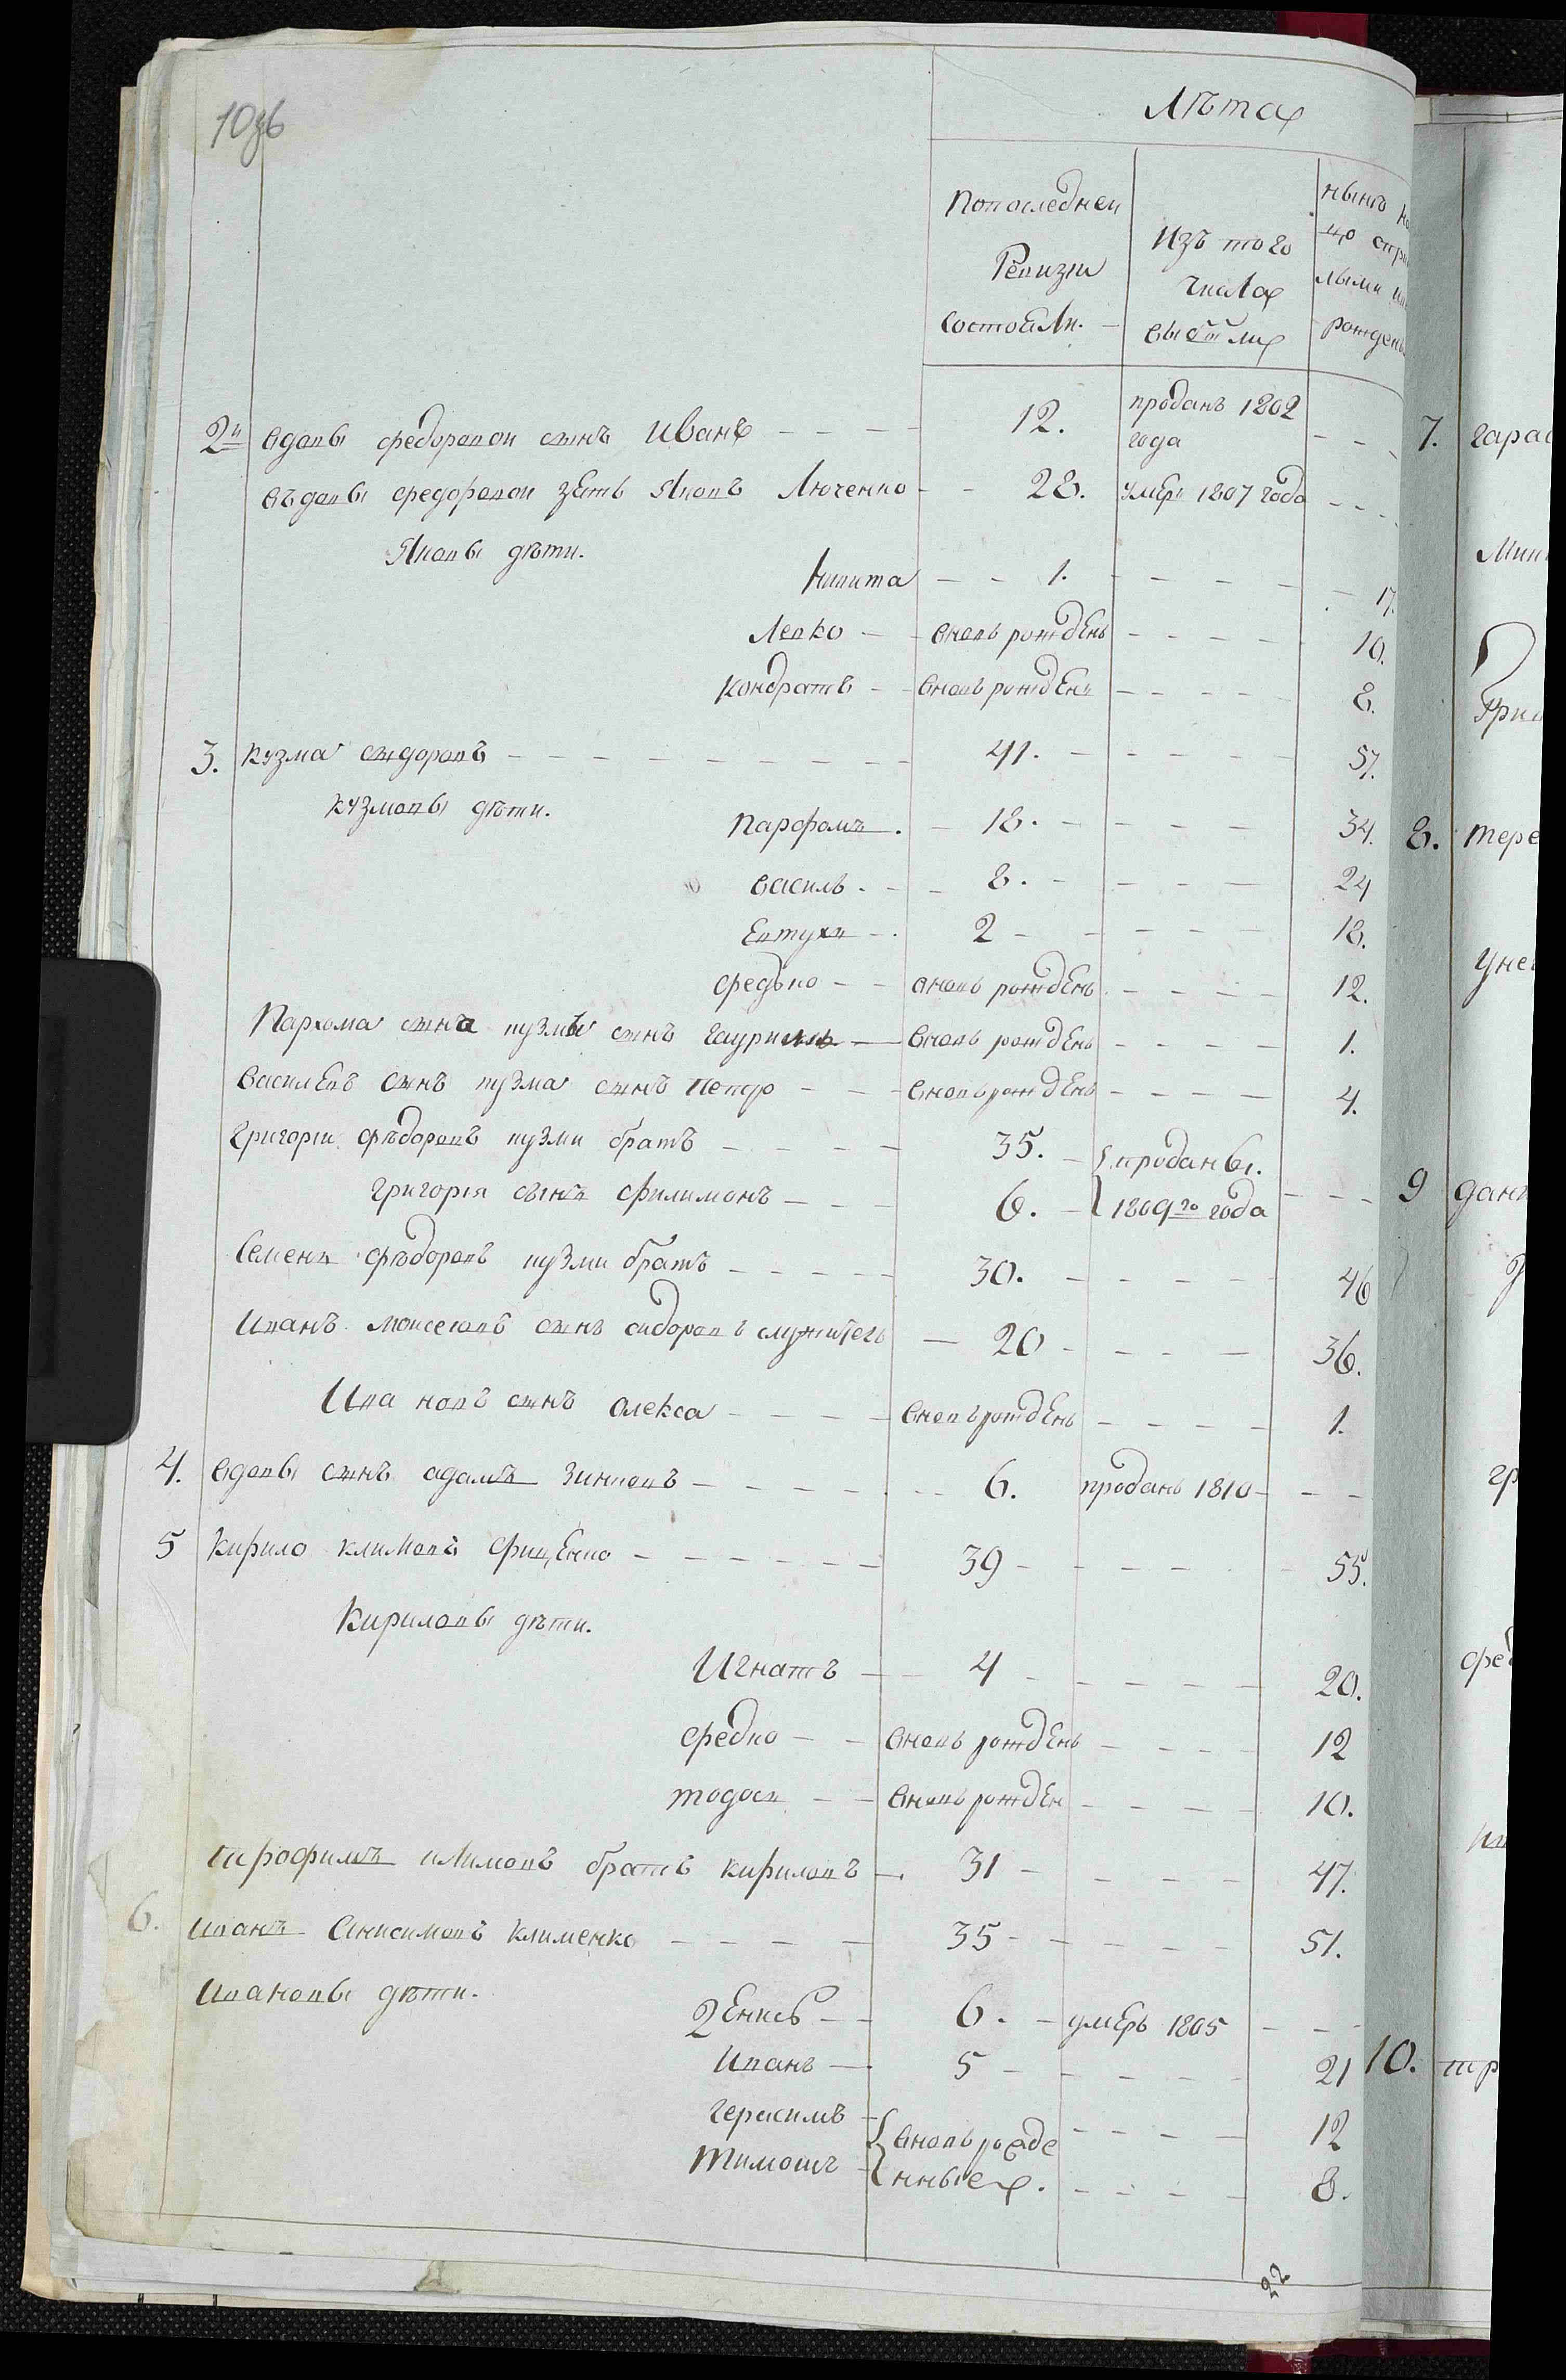 1096
Лѣта
Попоследнеи
Ревизіи
состояли.
Изъ того
числа
выбыли
нынѣ
рожден
2й вдовы федоровои сынъ Иванъ 12. проданъ 1802
года
въдовы федоровои зеть Яковъ Люченко 28. умеръ 1807 года
Яковы дѣти.
Никита 1. 17.
Левко вновь рожденъ 10.
Кондратъ вновь рожденъ 8.
3. Кузма сыдоровъ 41. 57.
Кузмовы дѣти.
Парфомъ. 18. 34.
Василь. 8. 24
Евтухъ 2 18.
федько вновь рожденъ 12.
Пархома сына кузмы сынъ гаурило вновь рожденъ 1.
Василевъ сынъ кузма сынъ петро вновь рожденъ 4.
Григории фѣдоровъ кузми братъ 35. проданы.
Григорія сынъ филимонъ 6. 1809го года
Семенъ фѣдоровъ кузми братъ 30. 46
Иванъ моисеювъ сынъ сидоровъ служитель 20 36.
Ива новъ сынъ олекса вновь рожденъ 1.
4. вдовы сынъ адамъ зинковъ 6. проданъ 1810
5 Кирило климовъ фищенко 39 55.
Кириловы дѣти.
Игнатъ 4 20.
федко вновь рожденъ 12
тодосъ вновь рожден 10.
климовъ братъ кириловъ 31 47.
6. Иванъ Анисимовъ клименко 35 51.
Ивановы дѣти.
Денисъ 6. умеръ 1805
Иванъ 5 21
герасимъ вновь рожде 12
Тимошъ нные. 8.
22
7. гарас
Мин
Гри
8. тере
9 дани
гр
фед
10. тр